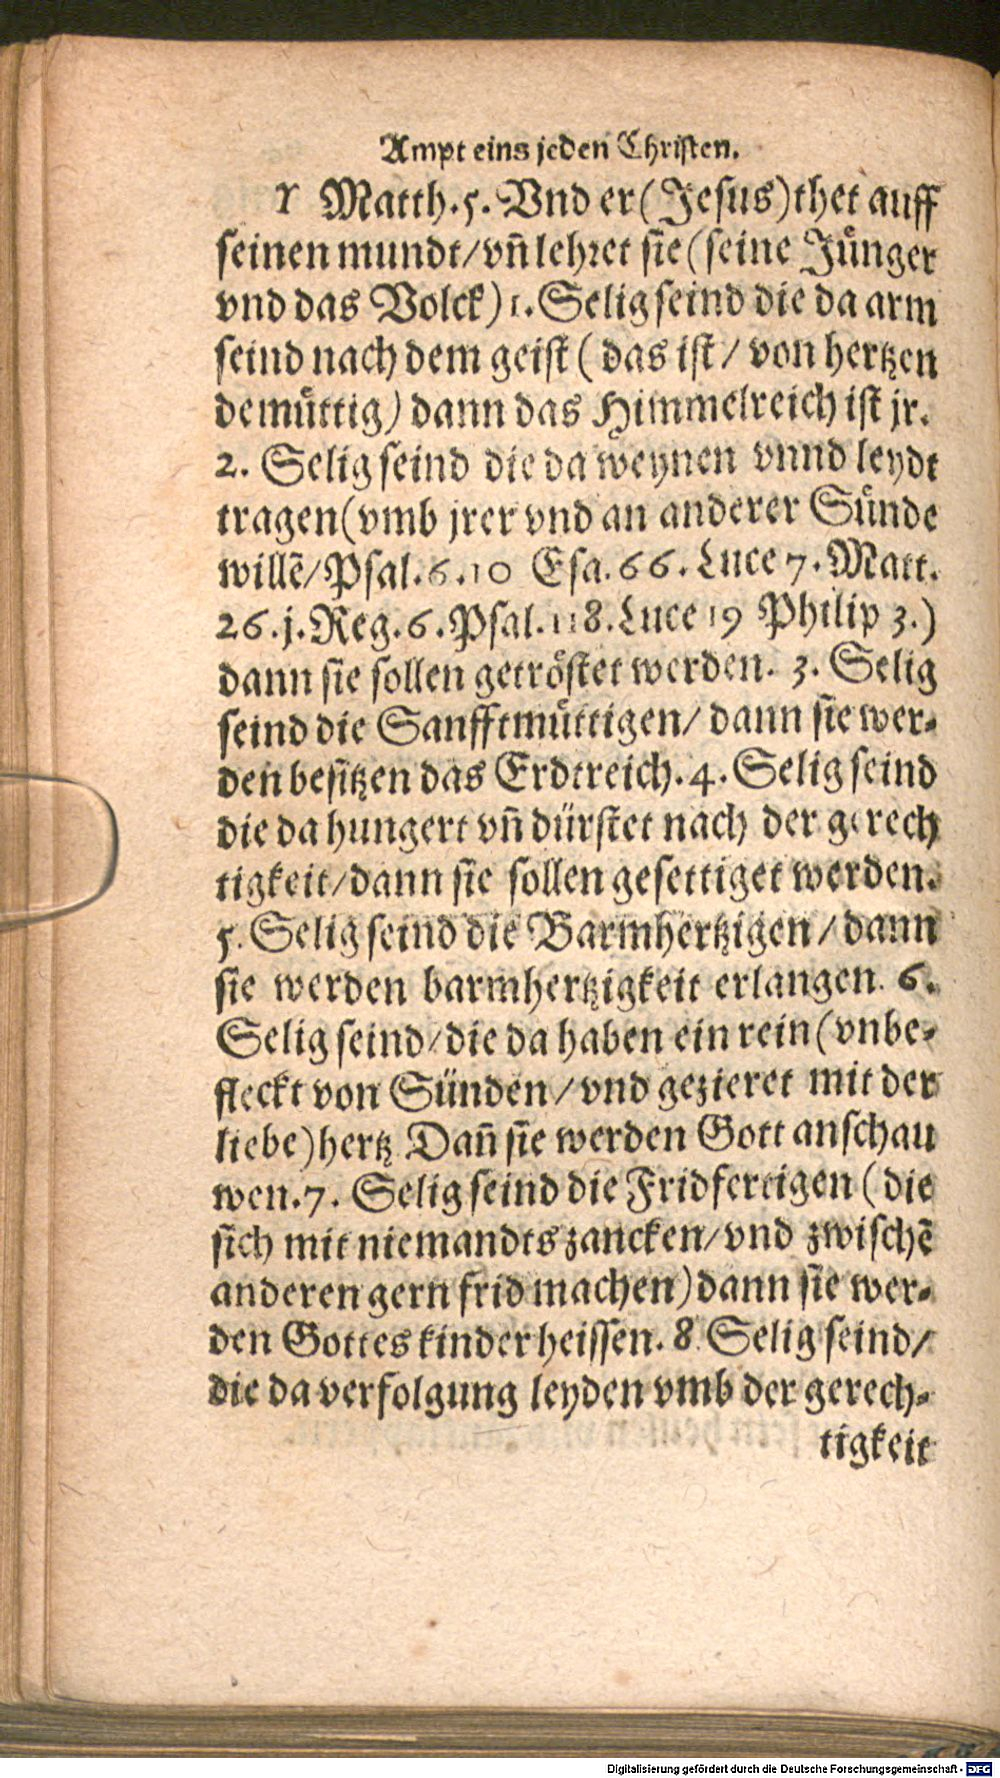 Ampt eins jeden Christen.
r Matth. 5. Vnd er (Jesus) thet auff
seinen mundt/ vn̄ lehret sie (seine Jünger
vnd das Volck) 1. Selig seind die da arm
seind nach dem geist (das ist/ von hertzen
demüttig) dann das Himmelreich ist jr.
2. Selig seind die da weynen vnnd leydt
tragen (vmb jrer vnd an anderer Sünde
willē/ Psal. 6. 10 Esa. 66. Luce 7. Matt.
26. j. Reg. 6. Psal. 118. Luce 19 Philip 3.)
dann sie sollen getröstet werden. 3. Selig
seind die Sanfftmüttigen/ dann sie wer-
den besitzen das Erdtreich. 4. Selig seind
die da hungert vn̄ dürstet nach der gerech
tigkeit/ dann sie sollen gesettiget werden.
5. Selig seind die Barmhertzigen/ dann
sie werden barmhertzigkeit erlangen. 6.
Selig seind/ die da haben ein rein (vnbe-
fleckt von Sünden/ vnd gezieret mit der
liebe) hertz Dan̄ sie werden Gott anschau
wen. 7. Selig seind die Fridfertigen (die
sich mit niemandts zancken/ vnd zwischē
anderen gern frid machen) dann sie wer-
den Gottes kinder heissen. 8 Selig seind/
die da verfolgung leyden vmb der gerech-
tigkeit
Digitalisierung gefördert durch die Deutsche Forschungsgemeinschaft - DFG